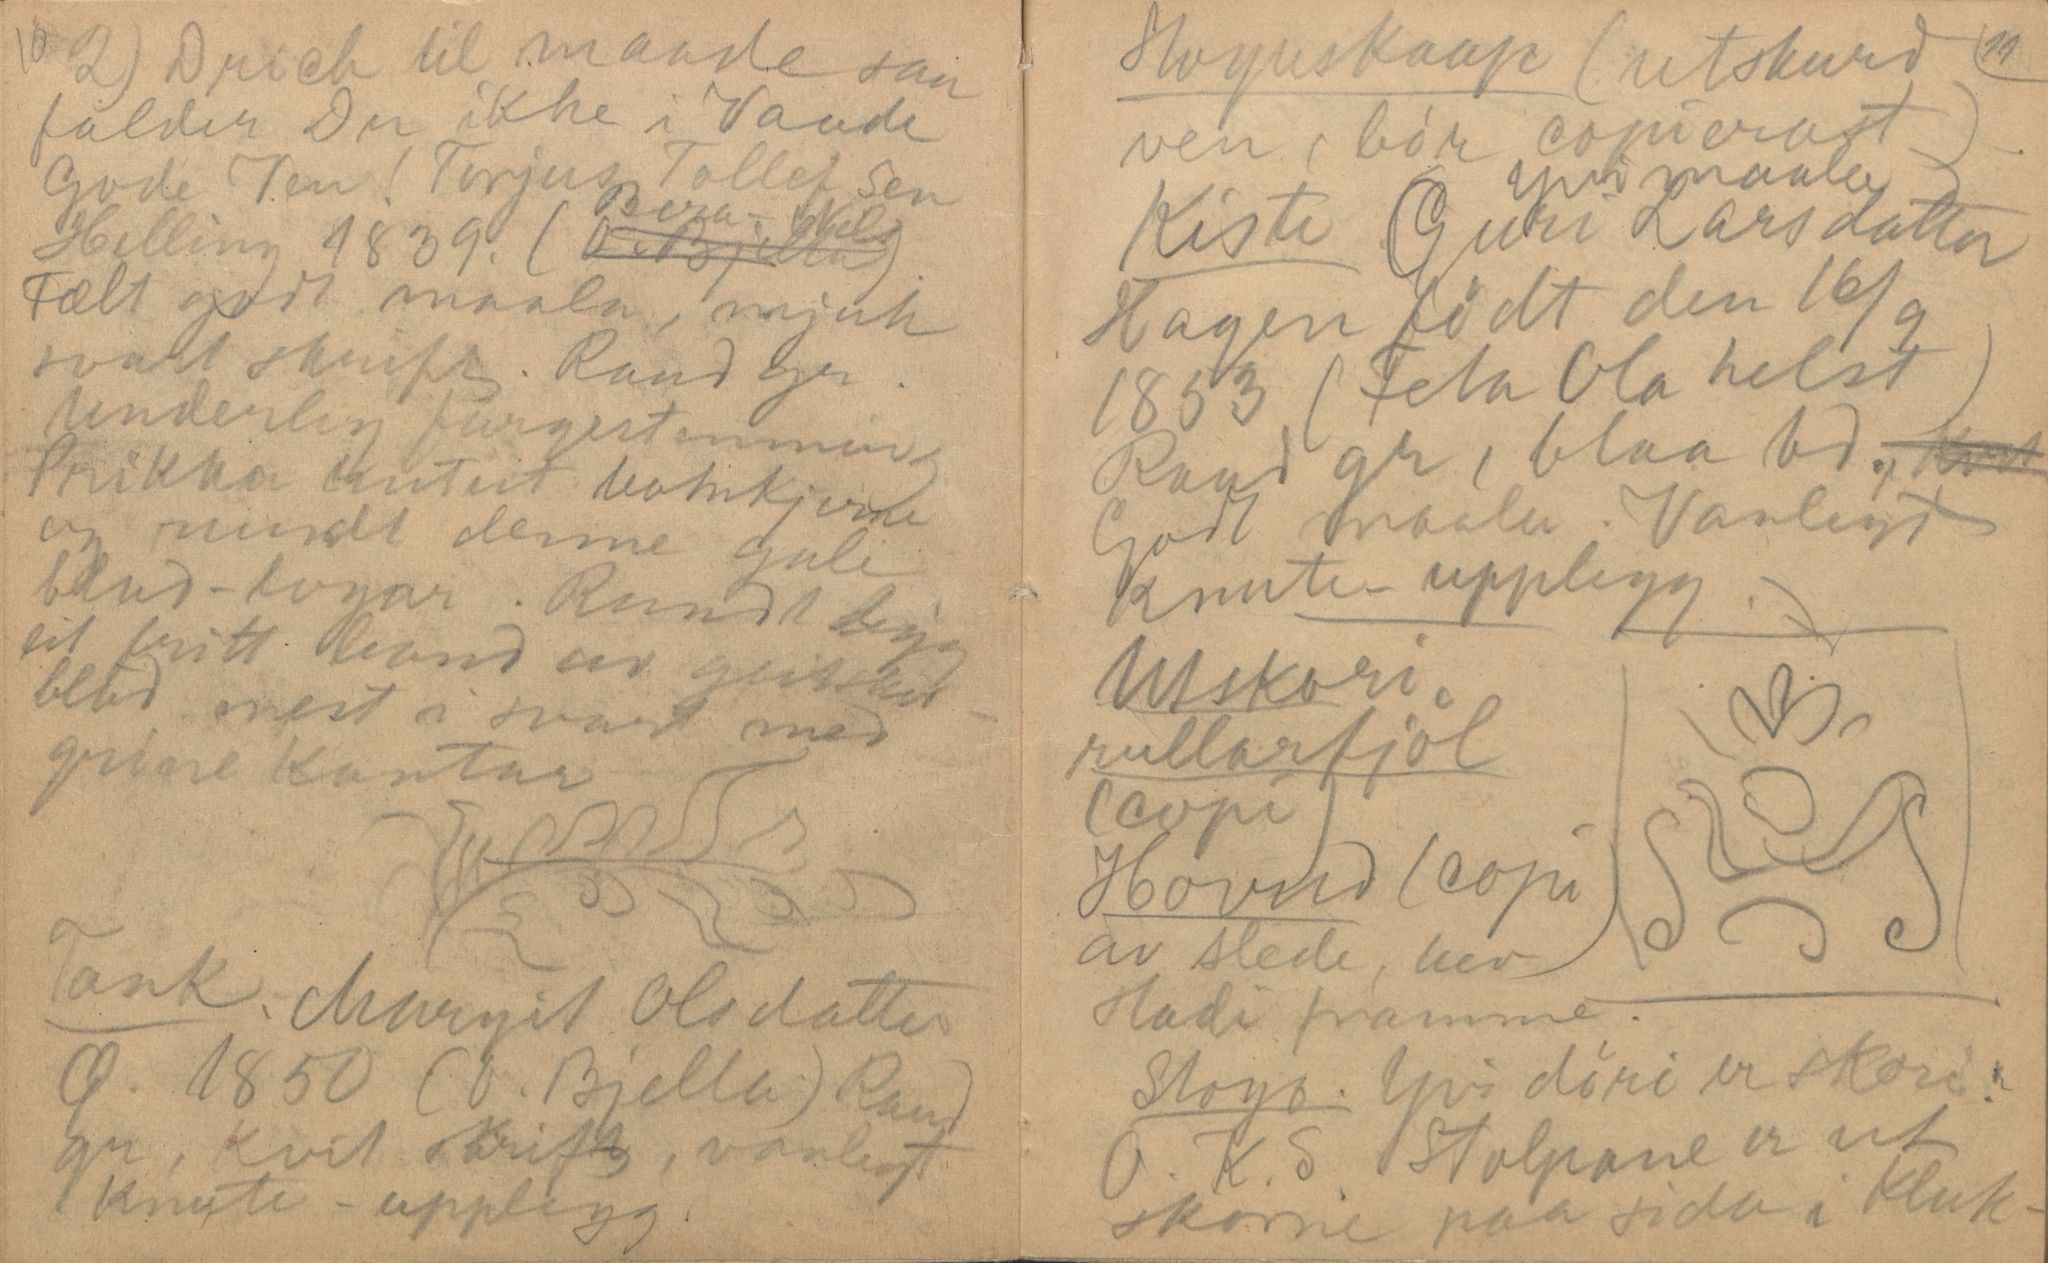 10
2) Drich til maade saa
falder Du ikke i Vande
Gode Ven! Torjus Tollefsen
Helling 1839. (O. Bjella)
Fælt godt maala, mjuk
svart skrift. Raud gr.
Underleg fargestemming
Prikka
og rundt denne gule
blad-bogar. Rundt
eit fritt band av
blad mest i svart med
grøne kantar
Tank. Margit Olsdatter
Q. 1850 (O. Bjella) Raud
gr, kvit skrift, vanlegt
Knute-upplegg.
11
Stoguskaap (utskurd
ven, bør copierast).
Kiste (Guri Larsdatter
yvi maala
Hagen födt den 16/9
1853 (Feta Ola helst)
Raud gr, blaa bd., kvit
Godt maala. Vanlegt
Knute-upplegg.
Utskori
rullarfjöl
(copi)
Hovud (copi)
av slede, uv
Hadi framme.
Stogo. Yvi döri er skori:
O. K. S. Stolpane er ut
skorne paa sida i Kluk-